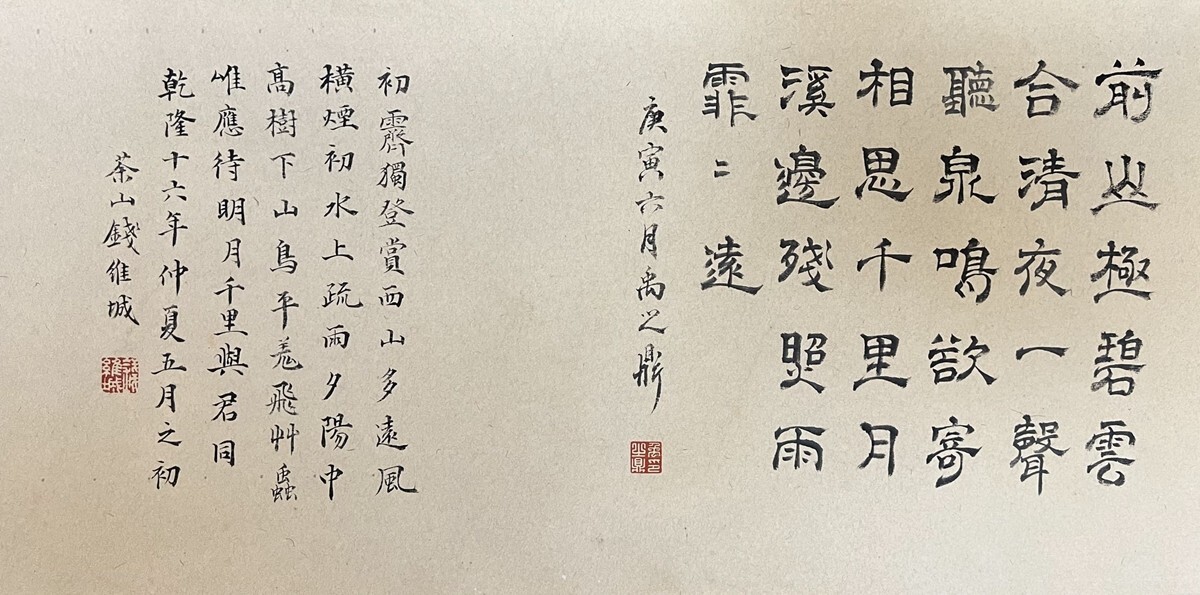 前山極碧雲
合清夜一聲
聽泉鳴欲寄
相思千里月
溪邊殘照雨
霏〻遠
庚寅六月禹之鼎
初霽獨登賞西山多遠風
橫煙初水上疏雨夕陽中
高樹下山鳥平羌飛艸蟲
唯應待明月千里與君同
乾隆十六年仲夏五月之初
茶山錢維城